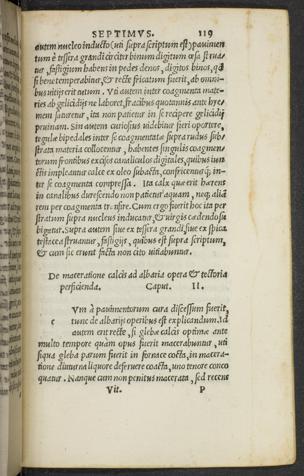 SEPTIMVS. 119
autem nucleo inducto (uti supra scriptum est) pauimen
tum è tessera grandi circiter binum digitum cæsa strua
tur, fastigium habens in pedes denos, digitos binos, qd
si bene temperabitur, & recte fricatum fuerit, ab omni-
bus uitijs erit tutum. Vti autem inter coagmenta mate-
ries ab gelicidijs ne laboret, fracibus quotannis ante hye-
mem saturetur, ita non patietur in se recipere gelicidij
pruinam. Sin autem curiosius uidebitur fieri oportere,
tegulæ bipedales inter se coagmentatæ supra rudus sub-
strata materia collocentur, habentes singulis coagmen-
torum frontibus excisos canaliculos digitales, quibus iun
ctis impleantur calce ex oleo subacta, confricenturq; in-
ter se coagmenta compressa. Ita calx quæ erit hærens
in canalibus durescendo non patietur aquam, neq; aliā
rem per coagmenta transire. Cum ergo fuerit hoc ita per
stratum supra nucleus inducatur, & uirgis cædendo su
bigetur. Supra autem siue ex tessera grandi, siue ex spica
testacea struantur, fastigijs, quibus est supra scriptum,
& cum sic erunt facta non cito uitiabuntur.
De maceratione calcis ad albaria opera & tectoria
perficienda. Caput. II.
Vm à pauimentorum cura discessum fuerit,
c tunc de albarijs operibus est explicandum. Id
autem erit recte, si glebæ calcis optimæ ante
multo tempore quàm opus fuerit macerabuntur, uti
siqua gleba parum fuerit in fornace cocta, in macera-
tione diuturna liquore deferuere coacta, uno tenore conco
quatur. Nanque cum non penitus macerata, sed recens
Vit. P